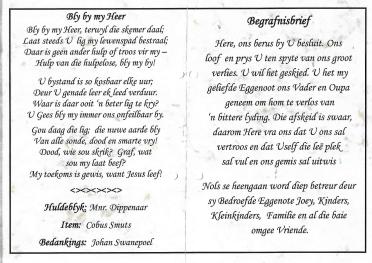 Bly by my Heer
Bly by my Heer, terwyl die skemer daal;
Laat steeds U lig my lewenspad bestraal;
Daar is geen ander hulp of troos vir my –
Hulp van die hulpelose, bly my by!
U bystand is so kosbaar elke uur;
Deur U genade leer ek leed verduur.
Waar is daar ooit 'n beter lig te kry?
U Gees bly my immer ons onfeilbaar by.
Gou daag die lig; die nuwe aarde bly
Van alle sonde, dood en smarte vry!
Dood, wie sou skrik? Graf, wat
sou my laat beef?
My toekoms is gewis, want Jesus leef!
<><><><><>
Huldeblyk: Mnr. Dippenaar
Item: Cobus Smuts
Bedankings: Johan Swanepoel
Begrafnisbrief
Here, ons berus by U besluit. Ons
loof en prys U ten spyte van ons groot
verlies. U wil het geskied. U het my
geliefde Eggenoot ons Vader en Oupa
geneem om hom te verlos van
'n bittere lyding. Die afskeid is swaar,
daarom Here vra ons dat U ons sal
vertroos en dat Uself die leë plek
sal vul en ons gemis sal uitwis
Nols se heengaan word diep betreur deur
sy Bedroefde Eggenote Joey, Kinders,
Kleinkinders, Familie en al die baie
omgee Vriende.